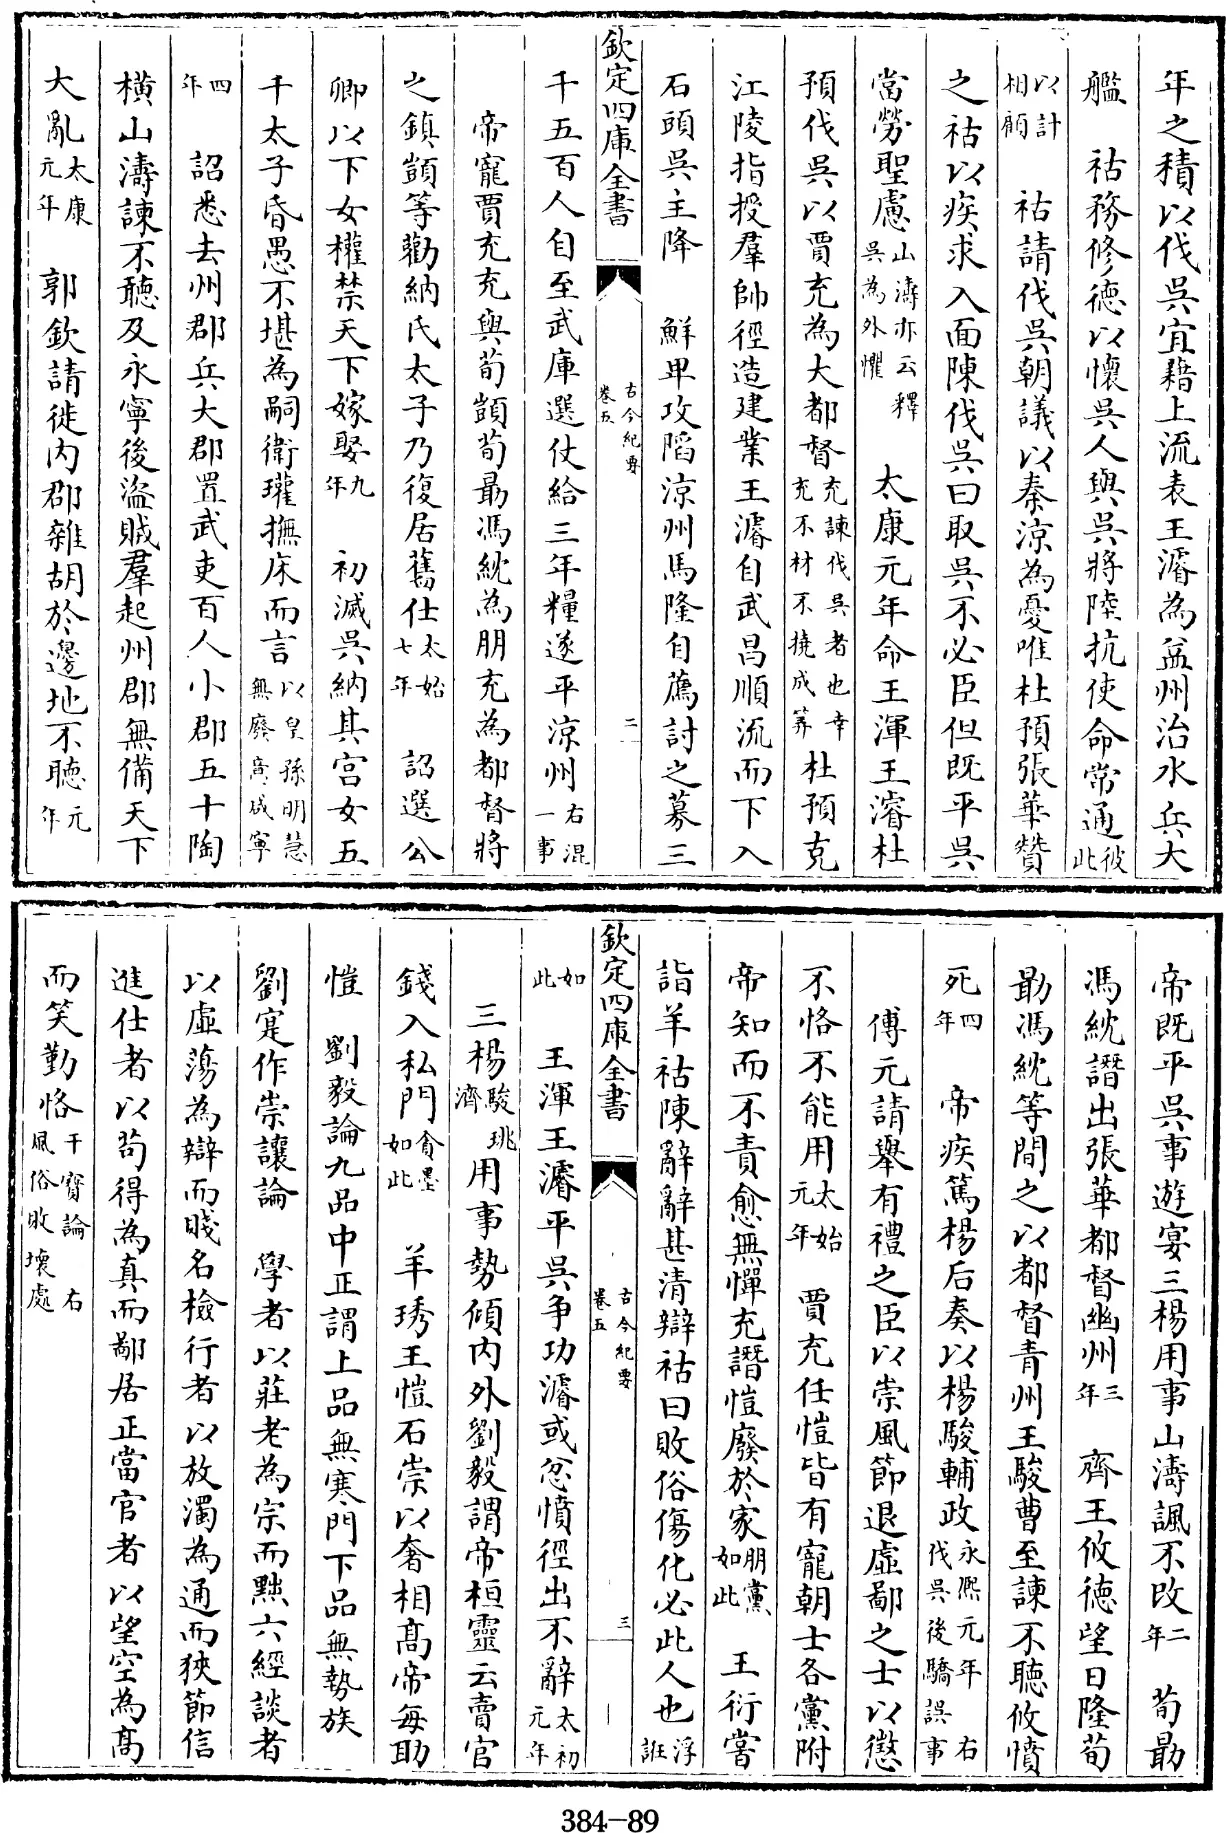 年之積以伐吳宜藉上流表王濬為益州治水兵大
艦　祜務修德以懷吳人與吳將陸抗使命常通彼此
以計相傾　祜請伐吳朝議以秦涼為憂唯杜預張華贊
之祜以疾求入面陳伐吳曰取吳不必臣但既平吳
當勞聖慮山濤亦云釋吳為外懼　太康元年命王渾王濬杜
預伐吳以賈充為大都督充諫伐吳者也幸充不材不撓成筭杜預克
江陵指授羣帥徑造建業王濬自武昌順流而下入
石頭吳主降　鮮卑攻陷涼州馬隆自薦討之募三
欽定四庫全書
古今紀要
卷五
二
千五百人自至武庫選仗給三年糧遂平涼州右混一事
帝寵賈充充與荀顗荀勗馮紞為朋充為都督將
之鎮顗等勸納氏太子乃復居舊仕太始七年　詔選公
卿以下女權禁天下嫁娶九年　初滅吳納其宮女五
千太子昏愚不堪為嗣衛瓘撫床而言以皇孫明慧無廢意咸寧
四年　詔悉去州郡兵大郡置武吏百人小郡五十陶
橫山濤諫不聽及永寧後盜賊羣起州郡無備天下
大亂太康元年　郭欽請徙內郡雜胡於邊地不聽元年
帝既平吳事遊宴三楊用事山濤諷不改二年　荀勗
馮紞譖出張華都督幽州三年　齊王攸德望日隆荀
勗馮紞等間之以都督青州王駿曹至諫不聽攸憤
死四年　帝疾篤楊后奏以楊駿輔政永熙元年右伐吳後驕誤事
傅元請舉有禮之臣以崇風節退虛鄙之士以懲
不恪不能用太始元年　賈充任愷皆有寵朝士各黨附
帝知而不責愈無憚充譖愷廢於家朋黨如此　王衍嘗
詣羊祜陳辭辭甚清辯祜曰敗俗傷化必此人也浮誑
欽定四庫全書
古今紀要
卷五
三
如此　王渾王濬平吳爭功濬或忿憤徑出不辭太初元年
三楊駿珧濟用事勢傾內外劉毅謂帝桓靈云賣官
錢入私門貪墨如此　羊琇王愷石崇以奢相高帝每助
愷　劉毅論九品中正謂上品無寒門下品無勢族
劉寔作崇讓論　學者以莊老為宗而黜六經談者
以虛蕩為辯而賤名檢行者以放濁為通而狹節信
進仕者以苟得為真而鄙居正當官者以望空為高
而笑勤恪干寶論右風俗敗壞處
384-89